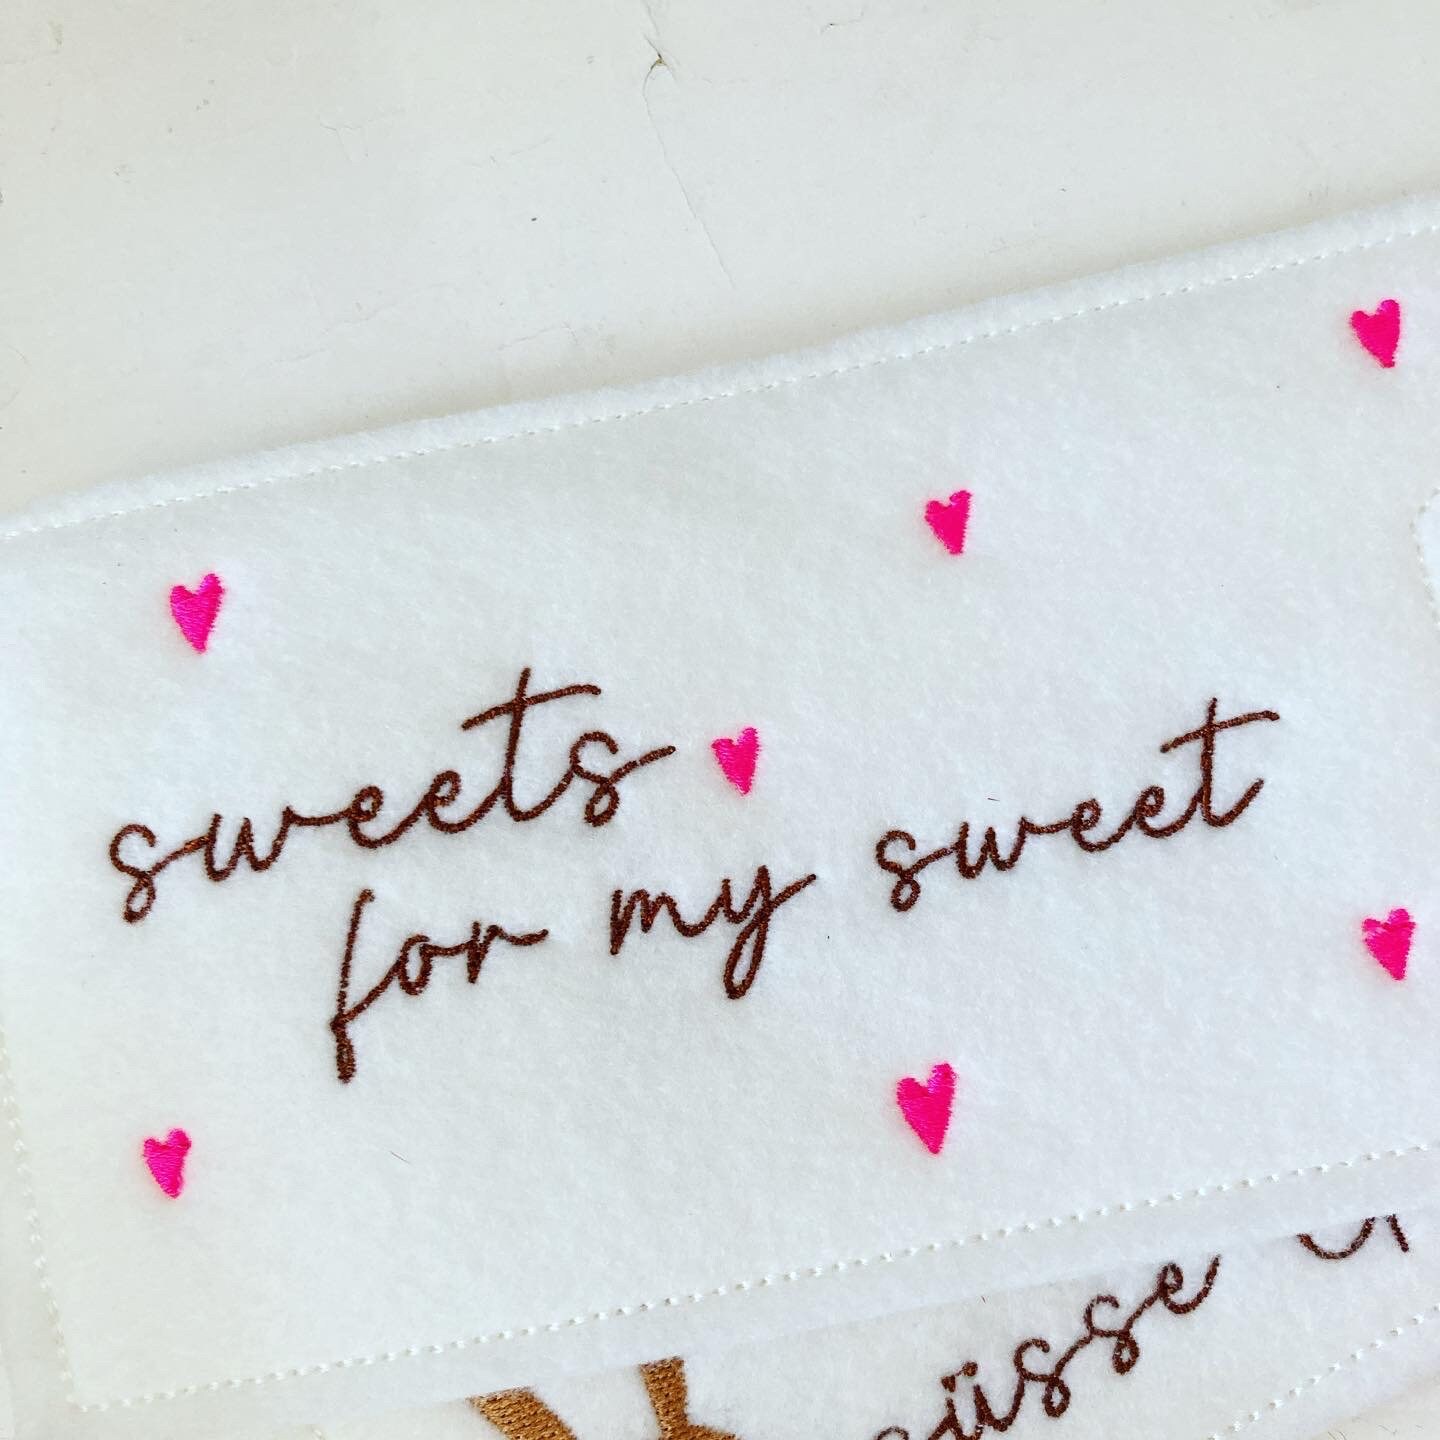 sweets
for my sweet